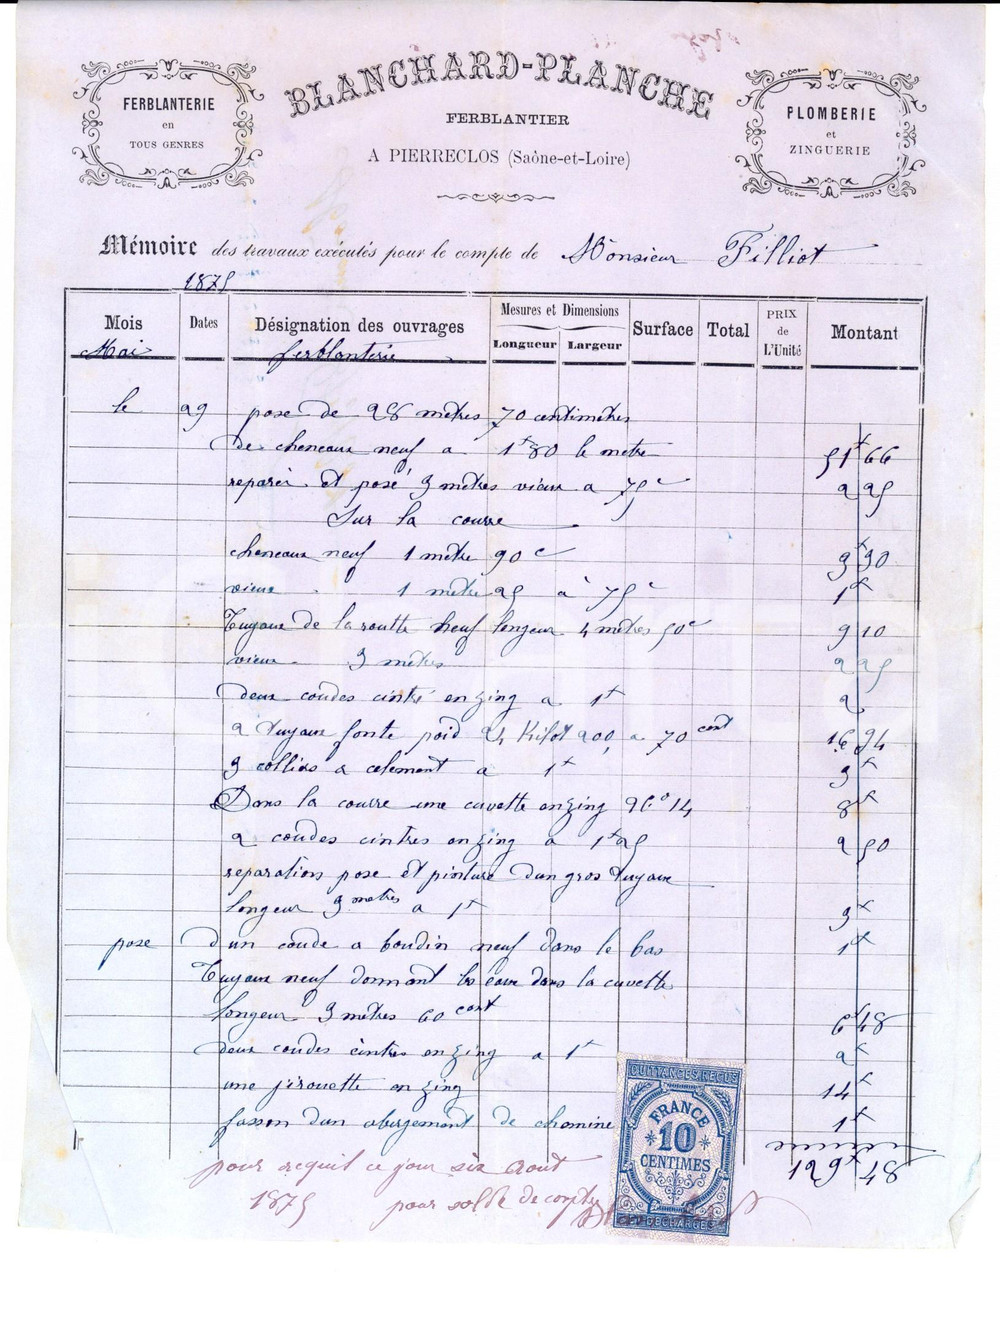 BLANCHARD-PLANCHE
FERBLANTERIE
en
TOUS GENRES
FERBLANTIER
A PIERRECLOS (Saône-et-Loire)
PLOMBERIE
et
ZINGUERIE
Mémoire des travaux exécutés pour le compte de Monsieur Filliot
1875
Mois Dates Désignation des ouvrages Mesures et Dimensions Longueur Largeur Surface Total PRIX de L'Unité Montant
Mai ferblanterie
le 29 pose de 28 mètres 70 centimètres
de cheneaux neuf a 1f 80 le metre 51f 66
reparér et posé 3 mètres vieux a 75c 2 25
Sur la courre
cheneaux neuf 1 mètre 90c 3f 30
vieux 1 metre 25 à 75c 1f
Tuyaux de la routte neuf longeur 4 mètres 50c 9 10
vieux 3 mètres 2 25
deux coudes cintré en zing a 1f 2
2 tuyaux fonte poid 24 Kilot 200 a 70 cent 16 94
3 colliés a célement a 1f 3f
Dans la courre une cuvette en zing 36 14 8f
2 coudes cintres en zing a 1f 25 2 50
reparations pose et pinture dun gros tuyaux
longeur 3 metres a 1f 3f
pose d'un coude a boudin neuf dans le bas 1f
Tuyaux neuf donnant les eaux dans la cuvette
longeur 3 mètres 60 cent 6f 48
deux coudes cintrés en zing a 1f 2f
une jirouette en zing 14f
fasson dun abergement de chemine 1f
129f 48
pour acquit ce jour six aout
1875 pour solde de compte
QUITTANCES REÇUS
FRANCE
10
CENTIMES
ET DÉCHARGES